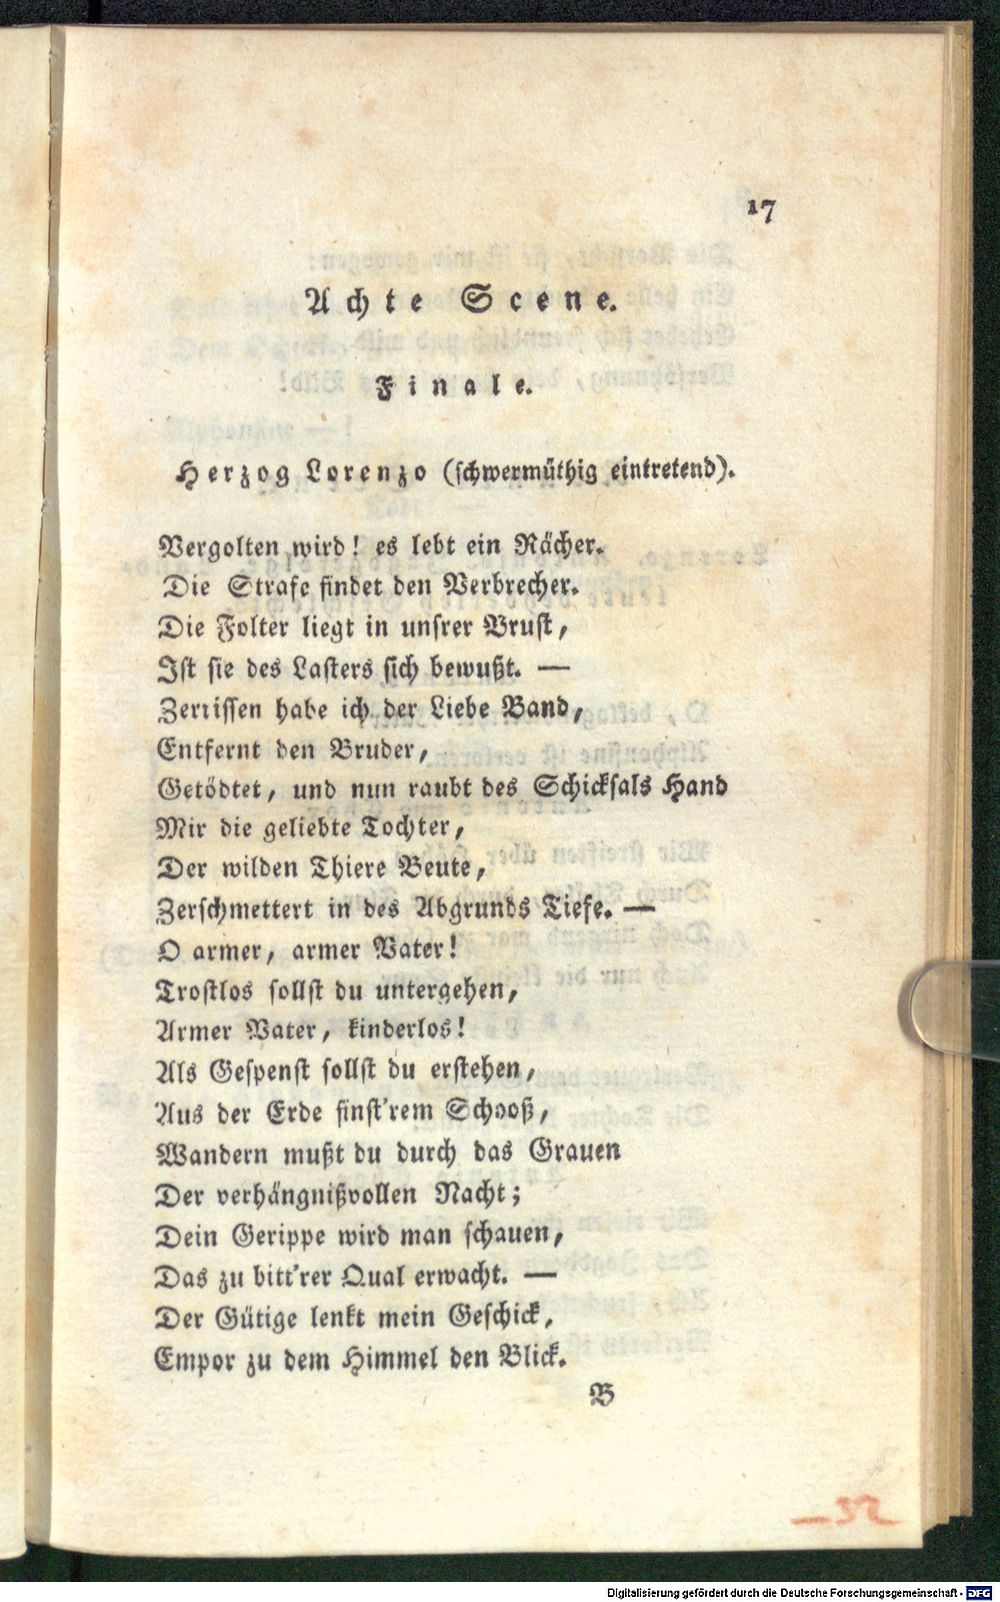 17
Achte Scene.
Finale.
Herzog Lorenzo (schwermüthig eintretend).
Vergolten wird! es lebt ein Rächer.
Die Strafe findet den Verbrecher.
Die Folter liegt in unsrer Brust,
Ist sie des Lasters sich bewußt. —
Zerrissen habe ich der Liebe Band,
Entfernt den Bruder,
Getödtet, und nun raubt des Schicksals Hand
Mir die geliebte Tochter,
Der wilden Thiere Beute,
Zerschmettert in des Abgrunds Tiefe. —
O armer, armer Vater!
Trostlos sollst du untergehen,
Armer Vater, kinderlos!
Als Gespenst sollst du erstehen,
Aus der Erde finst'rem Schooß,
Wandern mußt du durch das Grauen
Der verhängnißvollen Nacht;
Dein Gerippe wird man schauen,
Das zu bitt'rer Qual erwacht. —
Der Gütige lenkt mein Geschick,
Empor zu dem Himmel den Blick.
B
Digitalisierung gefördert durch die Deutsche Forschungsgemeinschaft - DFG